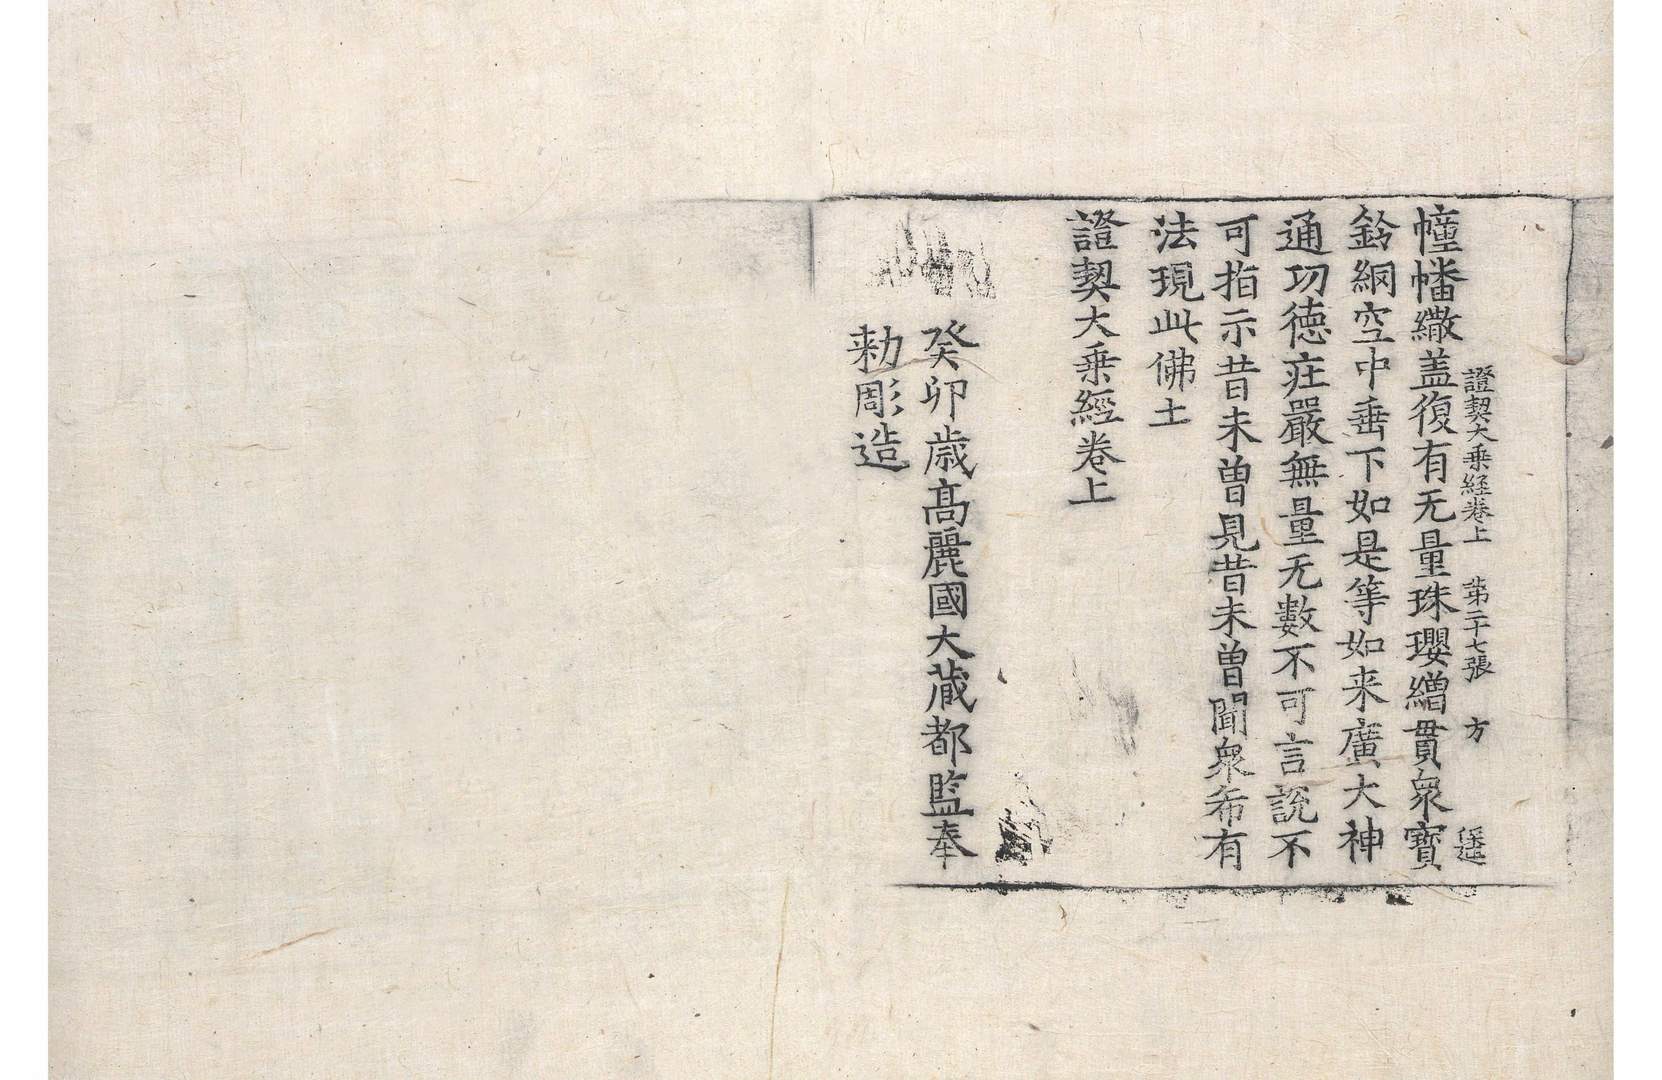 證契大乗経卷上 苐二十七張 方
幢幡繖盖復有无量珠瓔繒貫衆寶
鈴網空中垂下如是等如来廣大神
通功德莊嚴無量无數不可言說不
可指示昔未曽見昔未曽聞衆希有
法現此佛土
證契大乗經卷上
癸卯歳髙麗國大藏都監奉
勅彫造